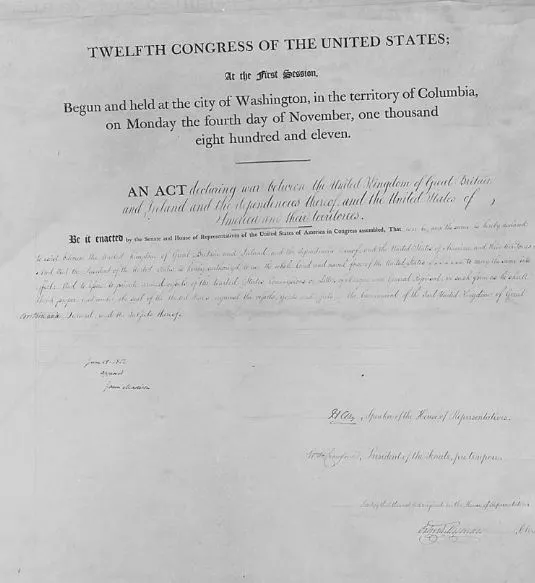 TWELFTH CONGRESS OF THE UNITED STATES;
At the First Session,
Begun and held at the city of Washington, in the territory of Columbia,
on Monday the fourth day of November, one thousand
eight hundred and eleven.
AN ACT declaring war between the United Kingdom of Great Britain
and Ireland and the dependencies thereof, and the United States of
America and their territories.
Be it enacted by the Senate and House of Representatives of the United States of America in Congress assembled, That war be, and the same is hereby declared
to exist between the United Kingdom of Great Britain and Ireland, and the dependencies thereof, and the United States of America and their territories;
and that the President of the United States is hereby authorized to use the whole land and naval force of the United States to carry the same into
effect, and to issue to private armed vessels of the United States commissions or letters of marque and general reprisal, in such form as he shall
think proper, and under the seal of the United States, against the vessels, goods, and effects of the government of the said United Kingdom of Great
Britain and Ireland, and the subjects thereof.
June 18 1812
Approved
James Madison
H Clay, Speaker of the House of Representatives.
Wm H Crawford, President of the Senate, pro tempore.
in the House of Representatives